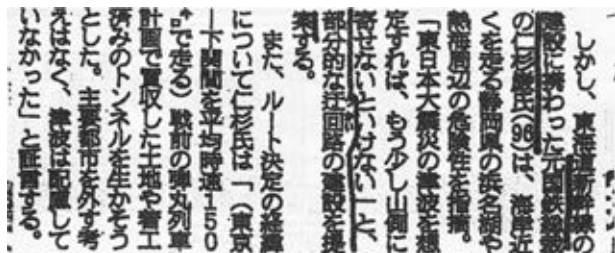 しかし、東海道新幹線の
建設に携わった元国鉄総裁
の仁杉巌氏(96)は、海岸近
くを走る静岡県の浜名湖や
熱海周辺の危険性を指摘。
「東日本大震災の津波を想
定すれば、もう少し山側に
寄せないといけない」と、
部分的な迂回路の建設を提
案する。
また、ルート決定の経緯
について仁杉氏は「(東京
―下関間を平均時速150
㌔で走る)戦前の弾丸列車
計画で買収した土地や着工
済みのトンネルを生かそう
とした。主要都市を外す考
えはなく、津波は配慮して
いなかった」と証言する。